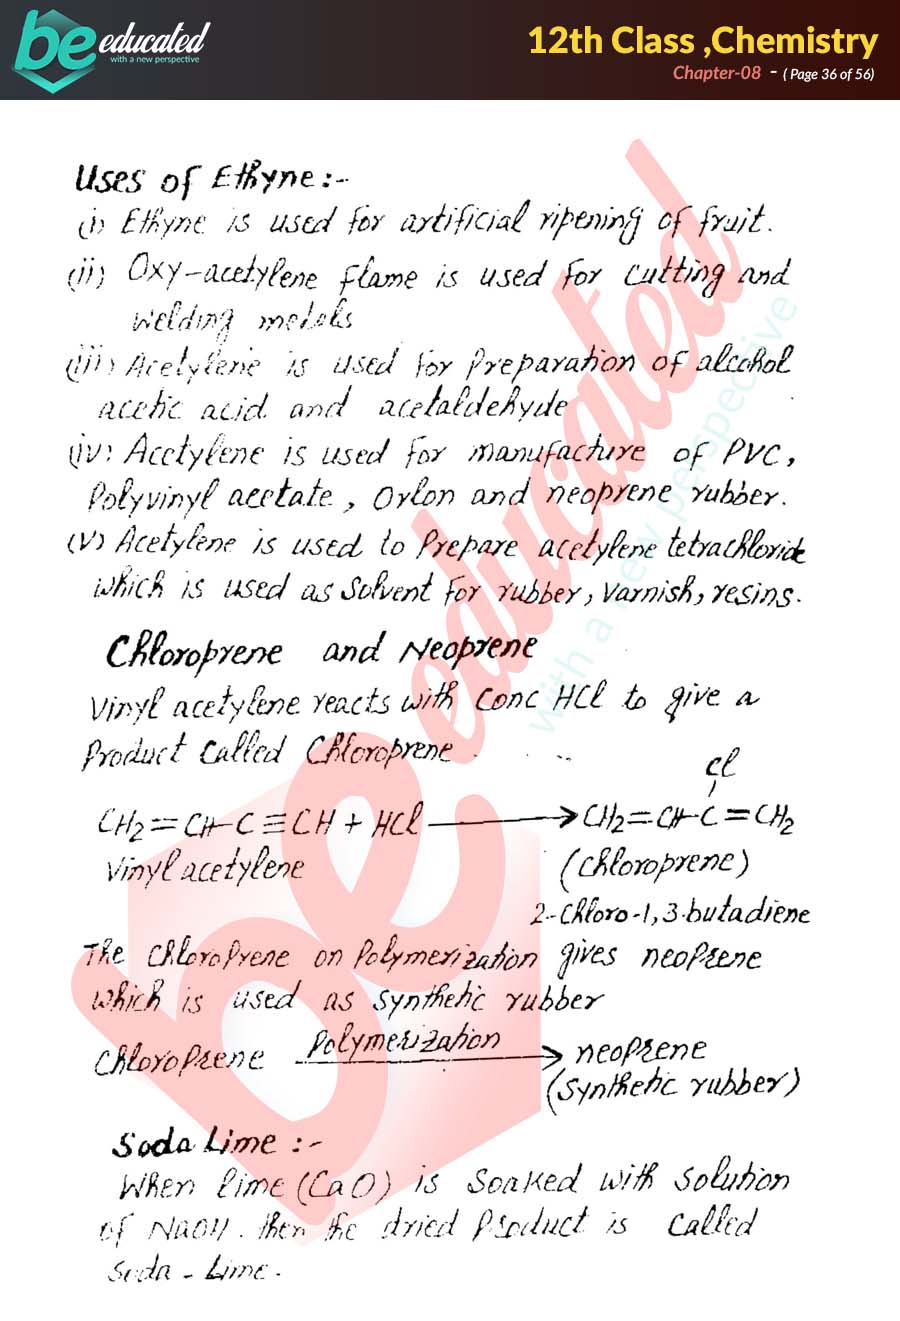 be educated
with a new perspective
12th Class ,Chemistry
Chapter-08 - ( Page 36 of 56)
Uses of Ethyne:--
(i) Ethyne is used for artificial ripening of fruit.
(ii) Oxy-acetylene flame is used for cutting and
welding metals
(iii) Acetylene is used for preparation of alcohol
acetic acid and acetaldehyde
(iv) Acetylene is used for manufacture of PVC,
Polyvinyl acetate, Orlon and neoprene rubber.
(v) Acetylene is used to Prepare acetylene tetrachloride
which is used as Solvent for rubber, varnish, resins.
Chloroprene and Neoprene
Vinyl acetylene reacts with conc HCl to give a
Product called Chloroprene.
Cl
CH2=CH-C≡CH + HCl ⟶ CH2=CH-C=CH2
Vinyl acetylene (Chloroprene)
2-Chloro-1,3-butadiene
The chloroprene on Polymerization gives neoprene
which is used as synthetic rubber
Chloroprene Polymerization ⟶ neoprene
(Synthetic rubber)
Soda Lime :--
When lime (CaO) is Soaked with solution
of NaOH. then the dried Product is called
Soda - Lime.
be educated
with a new perspective